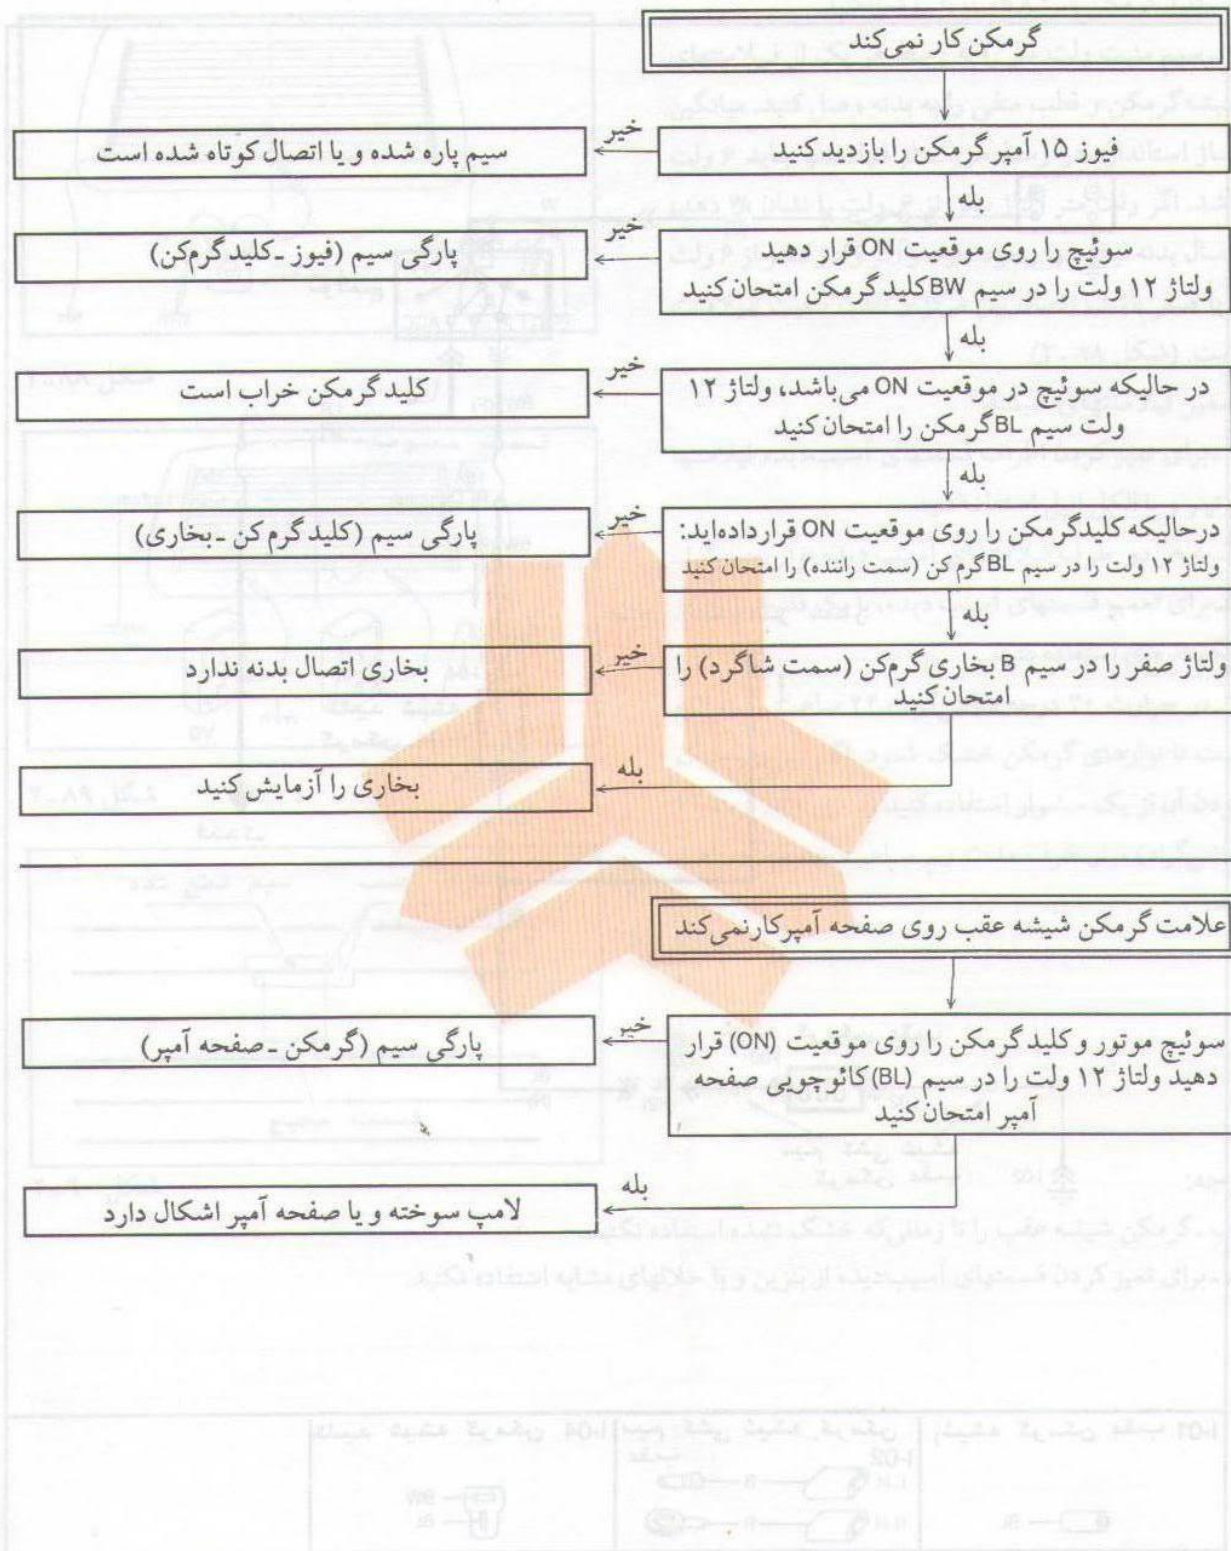 گرمکن کار نمی‌کند
فیوز ۱۵ آمپر گرمکن را بازدید کنید
خیر
سیم پاره شده و یا اتصال کوتاه شده است
بله
سوئیچ را روی موقعیت ON قرار دهید
ولتاژ ۱۲ ولت را در سیم BW کلید گرمکن امتحان کنید
خیر
پارگی سیم (فیوز ـ کلید گرم‌کن)
بله
در حالیکه سوئیچ در موقعیت ON می‌باشد، ولتاژ ۱۲
ولت سیم BL گرمکن را امتحان کنید
خیر
کلید گرمکن خراب است
بله
درحالیکه کلیدگرمکن را روی موقعیت ON قرارداده‌اید:
ولتاژ ۱۲ ولت را در سیم BL گرم کن (سمت راننده) را امتحان کنید
خیر
پارگی سیم (کلید گرم کن ـ بخاری)
بله
ولتاژ صفر را در سیم B بخاری گرم‌کن (سمت شاگرد) را
امتحان کنید
خیر
بخاری اتصال بدنه ندارد
بله
بخاری را آزمایش کنید
علامت گرمکن شیشه عقب روی صفحه آمپر کار نمی‌کند
سوئیچ موتور و کلید گرمکن را روی موقعیت (ON) قرار
دهید ولتاژ ۱۲ ولت را در سیم (BL) کائوچویی صفحه
آمپر امتحان کنید
خیر
پارگی سیم (گرمکن ـ صفحه آمپر)
بله
لامپ سوخته و یا صفحه آمپر اشکال دارد